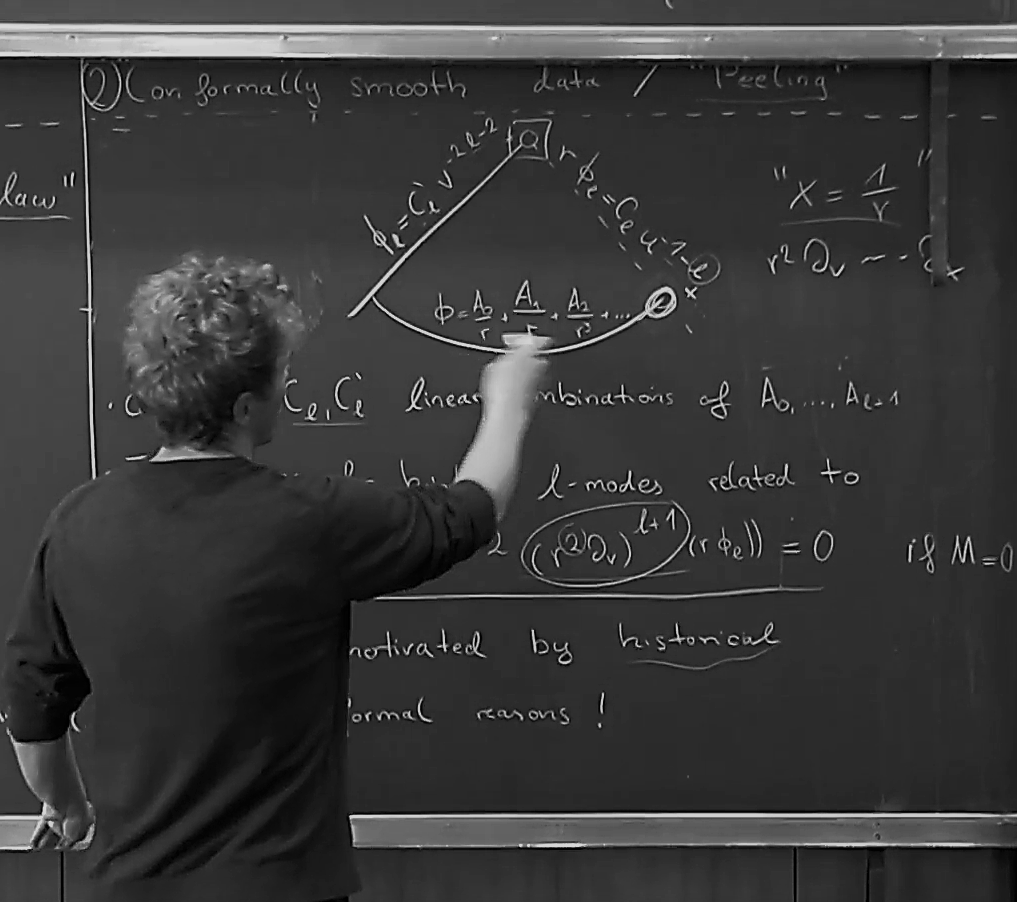 ② Conformally smooth data / "Peeling"
law"
ϕ_ℓ = C̀_ℓ v^{-2ℓ-2}
rϕ_ℓ = C_ℓ u^{-1-ℓ}
"x = 1/r"
r² ∂_v ~ -∂_x
ϕ = A_0/r + A_1/r + A_2/r³ + ...
C_ℓ, C̀_ℓ linear combinations of A_0, ..., A_{ℓ+1}
ℓ-modes related to
(r^② ∂_v)^{ℓ+1} (rϕ_ℓ)) = 0 if M=0
motivated by historical
formal reasons !